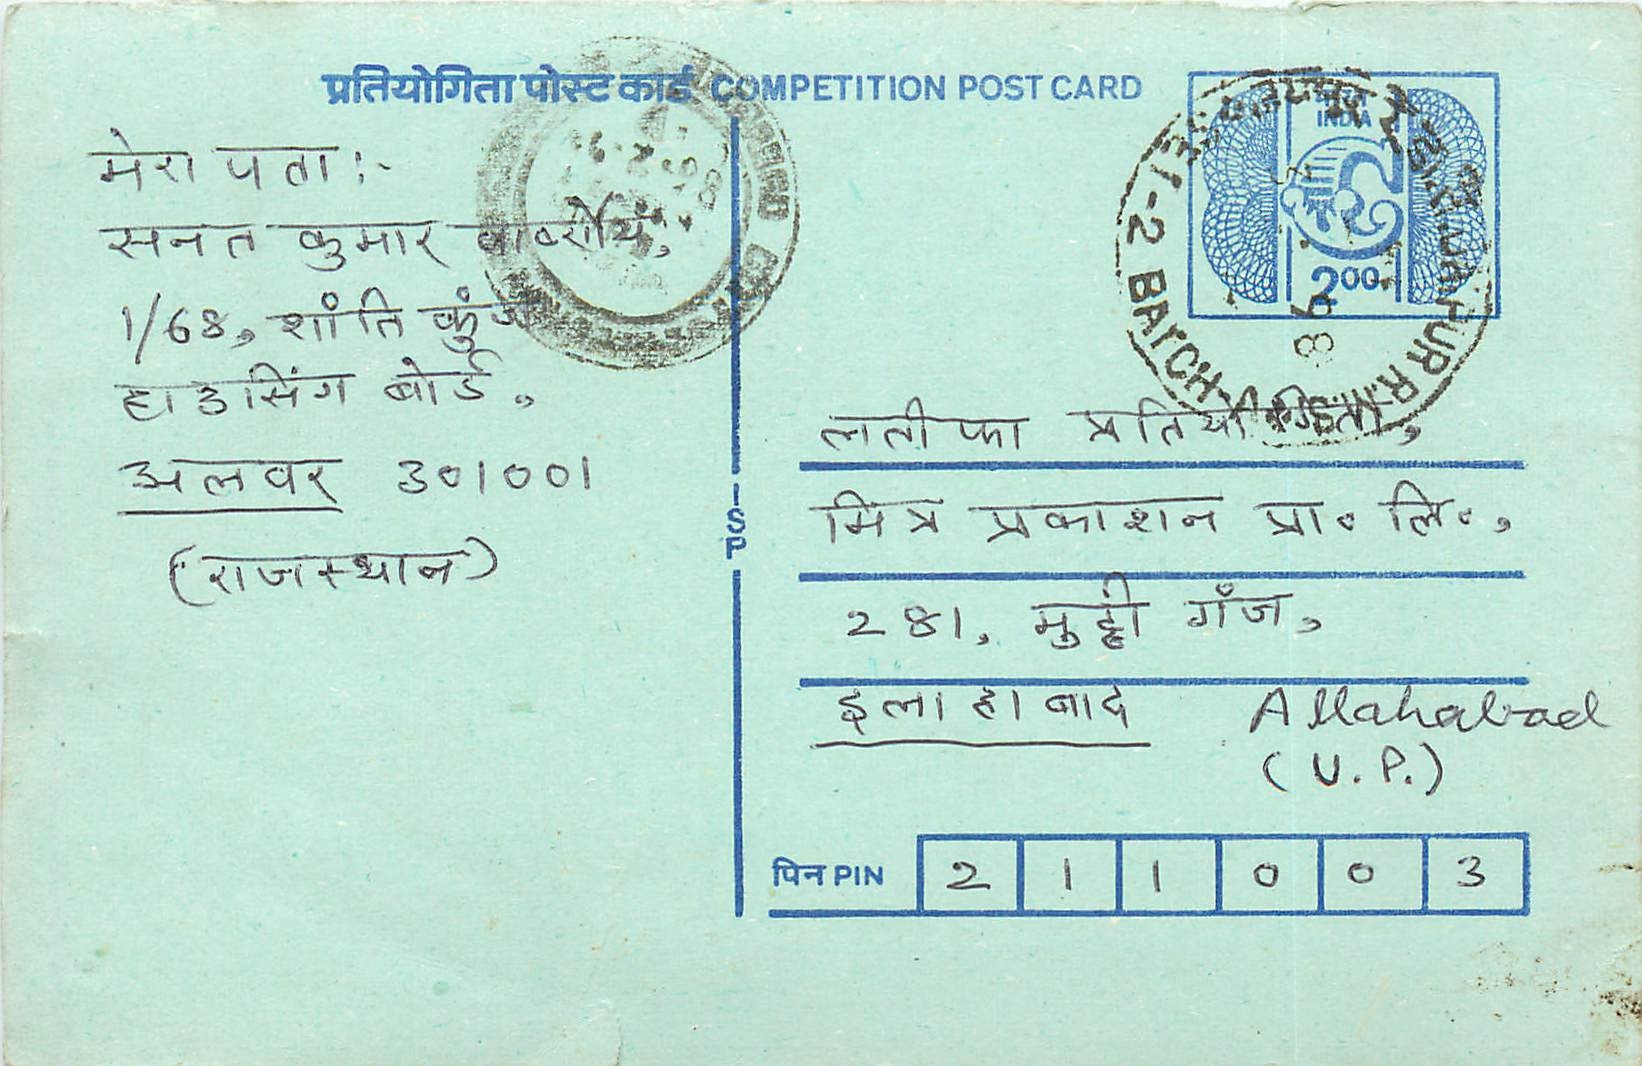 प्रतियोगिता पोस्ट कार्ड COMPETITION POST CARD
मेरा पता :-
सनत कुमार वार्ष्णेय,
1/68, शांति कुंज
हाउसिंग बोर्ड,
अलवर 301001
(राजस्थान)
ISP
भारत
INDIA
2.00
JAIPUR R.M.S.
ET-2 BATCH-
98
लतीफा प्रतियोगिता,
मित्र प्रकाशन प्रा० लि०,
281, मुट्ठी गँज,
इलाहाबाद Allahabad
(U.P.)
पिन PIN 2 1 1 0 0 3